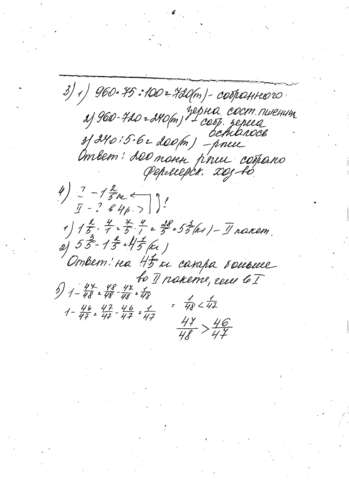 3) 1) 960·75:100=720(т) - собранного
зерна сост. пшеница
2) 960-720=240(т) - соб. зерна
осталось
3) 240:5·6=200(т) - ржи
Ответ: 200 тонн ржи собрано
фермерск. хоз-во
4) I - 1 2/5 кг
II - ? в 4 р. > ?!
1) 1 2/5 · 4/1 = 7/5 · 4/1 = 28/5 = 5 3/5 (кг) - II пакет.
2) 5 3/5 - 1 2/5 = 4 1/5 (кг)
Ответ: на 4 1/5 кг сахара больше
во II пакете, чем в I
5) 1 - 47/48 = 48/48 - 47/48 = 1/48
1 - 46/47 = 47/47 - 46/47 = 1/47 = 1/48 < 1/47
47/48 > 46/47